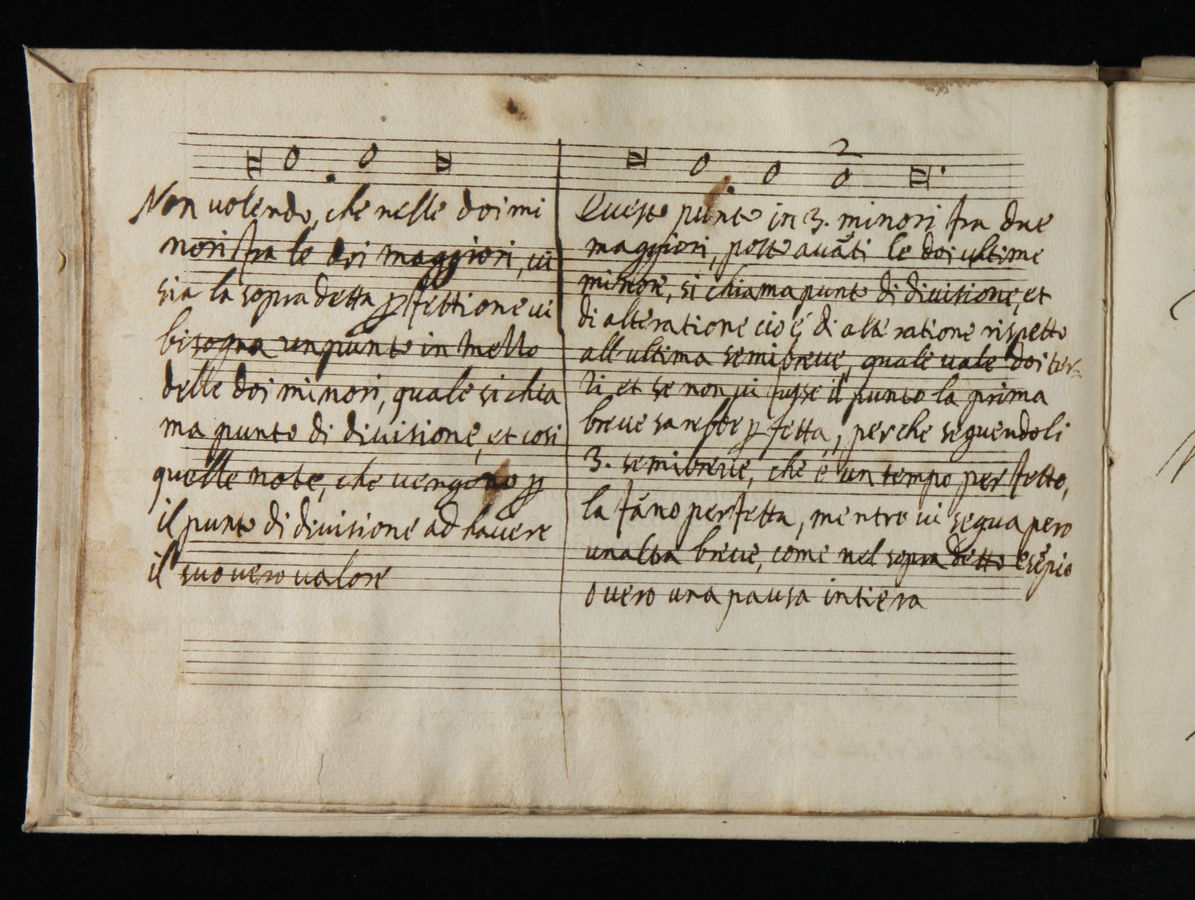 Non volendo, che nelle doi mi
nori fra le doi maggiori, vi
sia la sopra detta p fettione vi
bisogna un punto in mezzo
delle doi minori, quale si chia
ma punto di divisione, et cosi
quelle note, che vengono p
il punto di divisione ad havere
il suo vero valore
2
Questo punto in 3. minori fra due
maggiori, posto avāti le doi ultime
minore, si chiama punto di divisione, et
di alteratione cio é di alteratione rispetto
all ultima semibreve, quale vale doi ter
zi et se non vi fusse il punto la prima
breve sarebbe p fetta, perche seguendoli
3. semibreve, che è un tempo perfetto,
la fāno perfetta, mentre vi segua pero
unaltra breve, come nel sopra detto esēpio
overo una pausa intiera